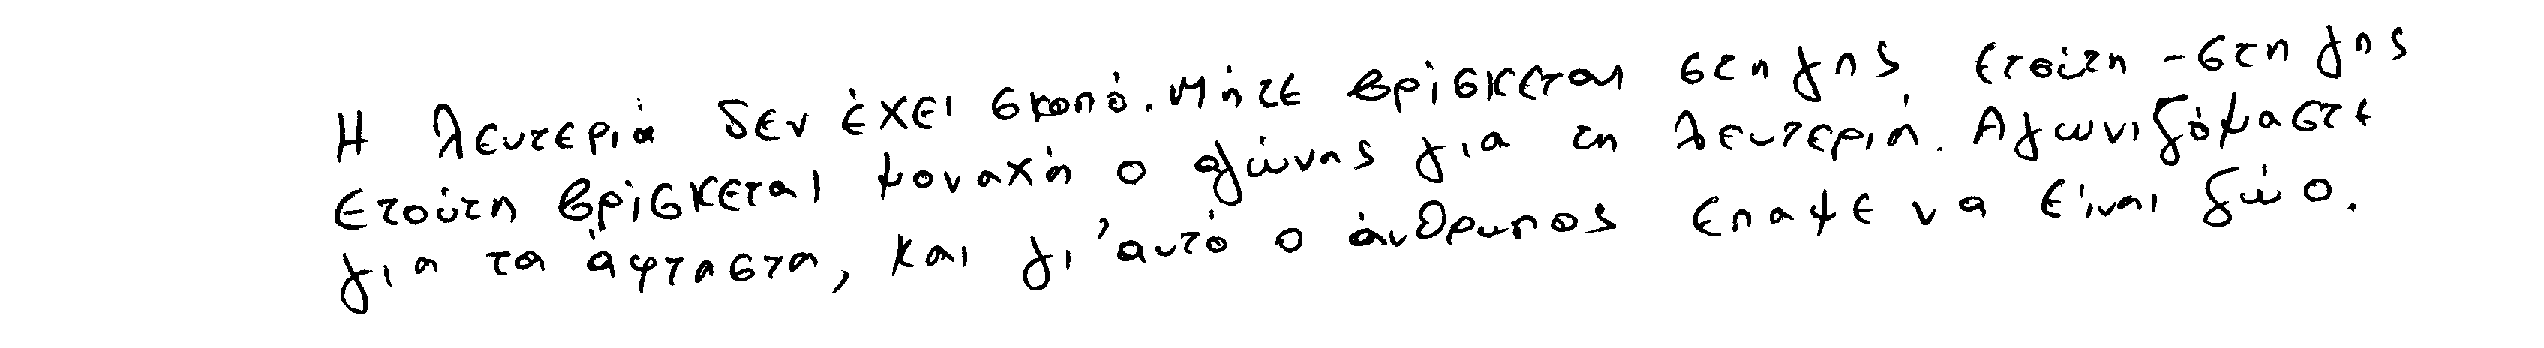 Η λευτεριά δεν έχει σκοπό. Μήτε βρίσκεται στη γης ετούτη - στη γης
ετούτη βρίσκεται μοναχή ο αγώνας για τη λευτεριά. Αγωνιζόμαστε
για τα άφταστα, και γι' αυτό ο άνθρωπος έπαψε να είναι ζώο.